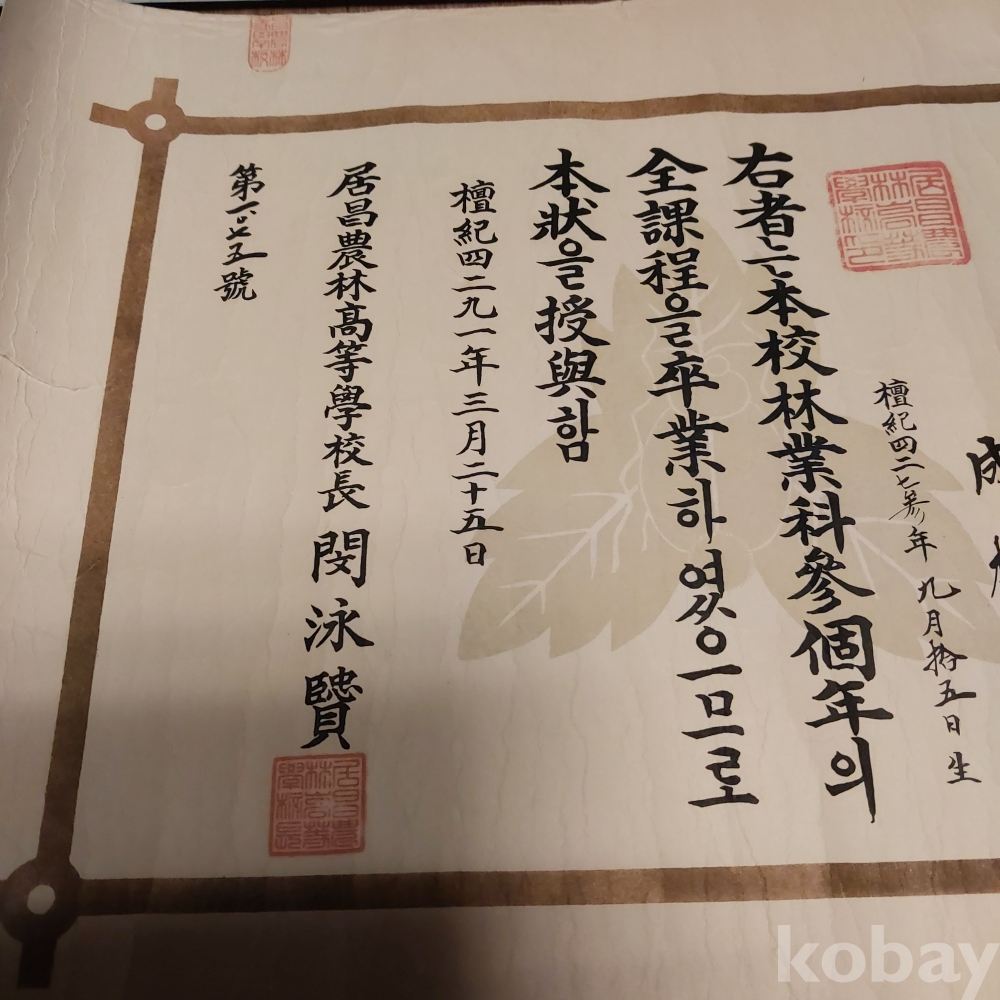 成
檀紀四二七參年 九月拾五日生
右者는本校林業科參個年의
全課程을卒業하였으므로
本狀을授與함
檀紀四二九一年三月二十五日
居昌農林高等學校長 閔泳贇
第一〇七五號
居昌農林高等學校印
居昌農林高等學校長
kobay